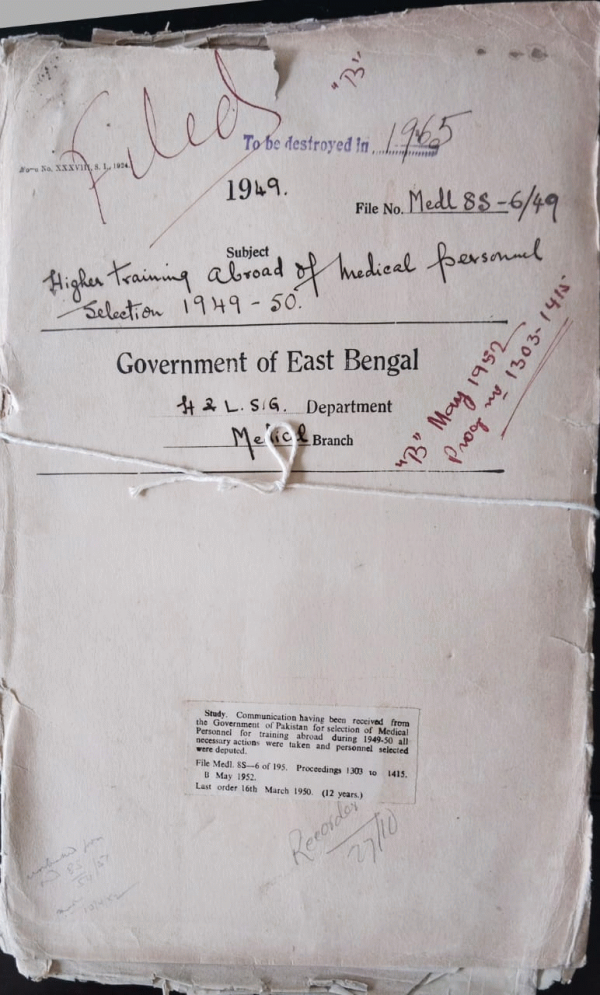 Filed
"B"
To be destroyed in 1965
Form No. XXXVIII, S. I., 1924.
1949.
File No. Medl 8S-6/49
Subject
Higher training abroad of Medical personnel
Selection 1949-50.
Government of East Bengal
H & L.S.G. Department
Medical Branch
"B" May 1952
Prog no 1303-1415
Study. Communication having been received from
the Government of Pakistan for selection of Medical
Personnel for training abroad during 1949-50 all
necessary actions were taken and personnel selected
were deputed.
File Medl. 8S—6 of 195. Proceedings 1303 to 1415.
B May 1952.
Last order 16th March 1950. (12 years.)
Recorder
27/10